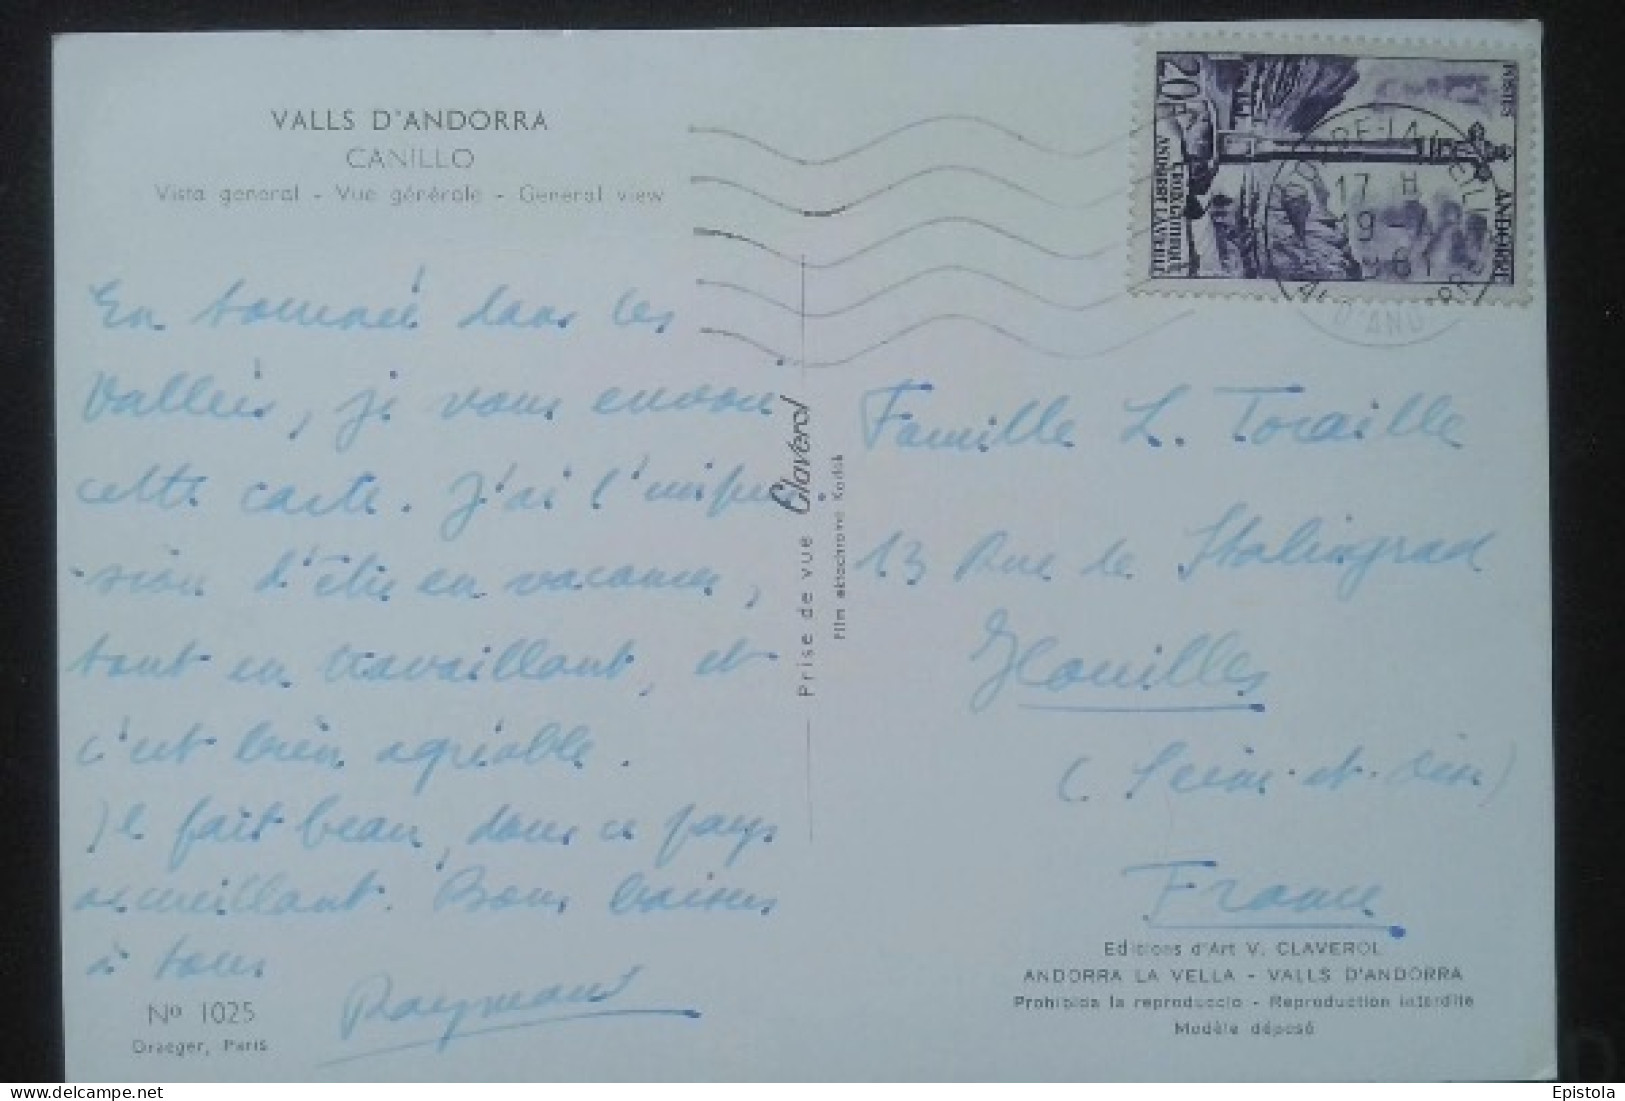 VALLS D'ANDORRA
CANILLO
Vista general - Vue générale - General view
En tournée dans les
Vallées, je vous envoie
cette carte. J'ai l'impres
sion d'être en vacances,
tout en travaillant, et
c'est bien agréable.
Il fait beau, dans ce pays
accueillant. Bons baisers
à tous
Raymond
Nº 1025
Draeger, Paris
Prise de vue Claverol
Film ektachrome Kodak
20F
POSTES
ANDORRE
CROIX GOTHIQUE
ANDORRE LA VIEILLE
ANDORRE-LA-VIEILLE
17 H
19
1961
VAL D'ANDORRE
Famille L. Toraille
13 Rue de Stalingrad
Houilles
(Seine-et-Oise)
France
Editions d'Art V. CLAVEROL
ANDORRA LA VELLA - VALLS D'ANDORRA
Prohibida la reproduccio - Reproduction interdite
Modèle déposé
Epistola